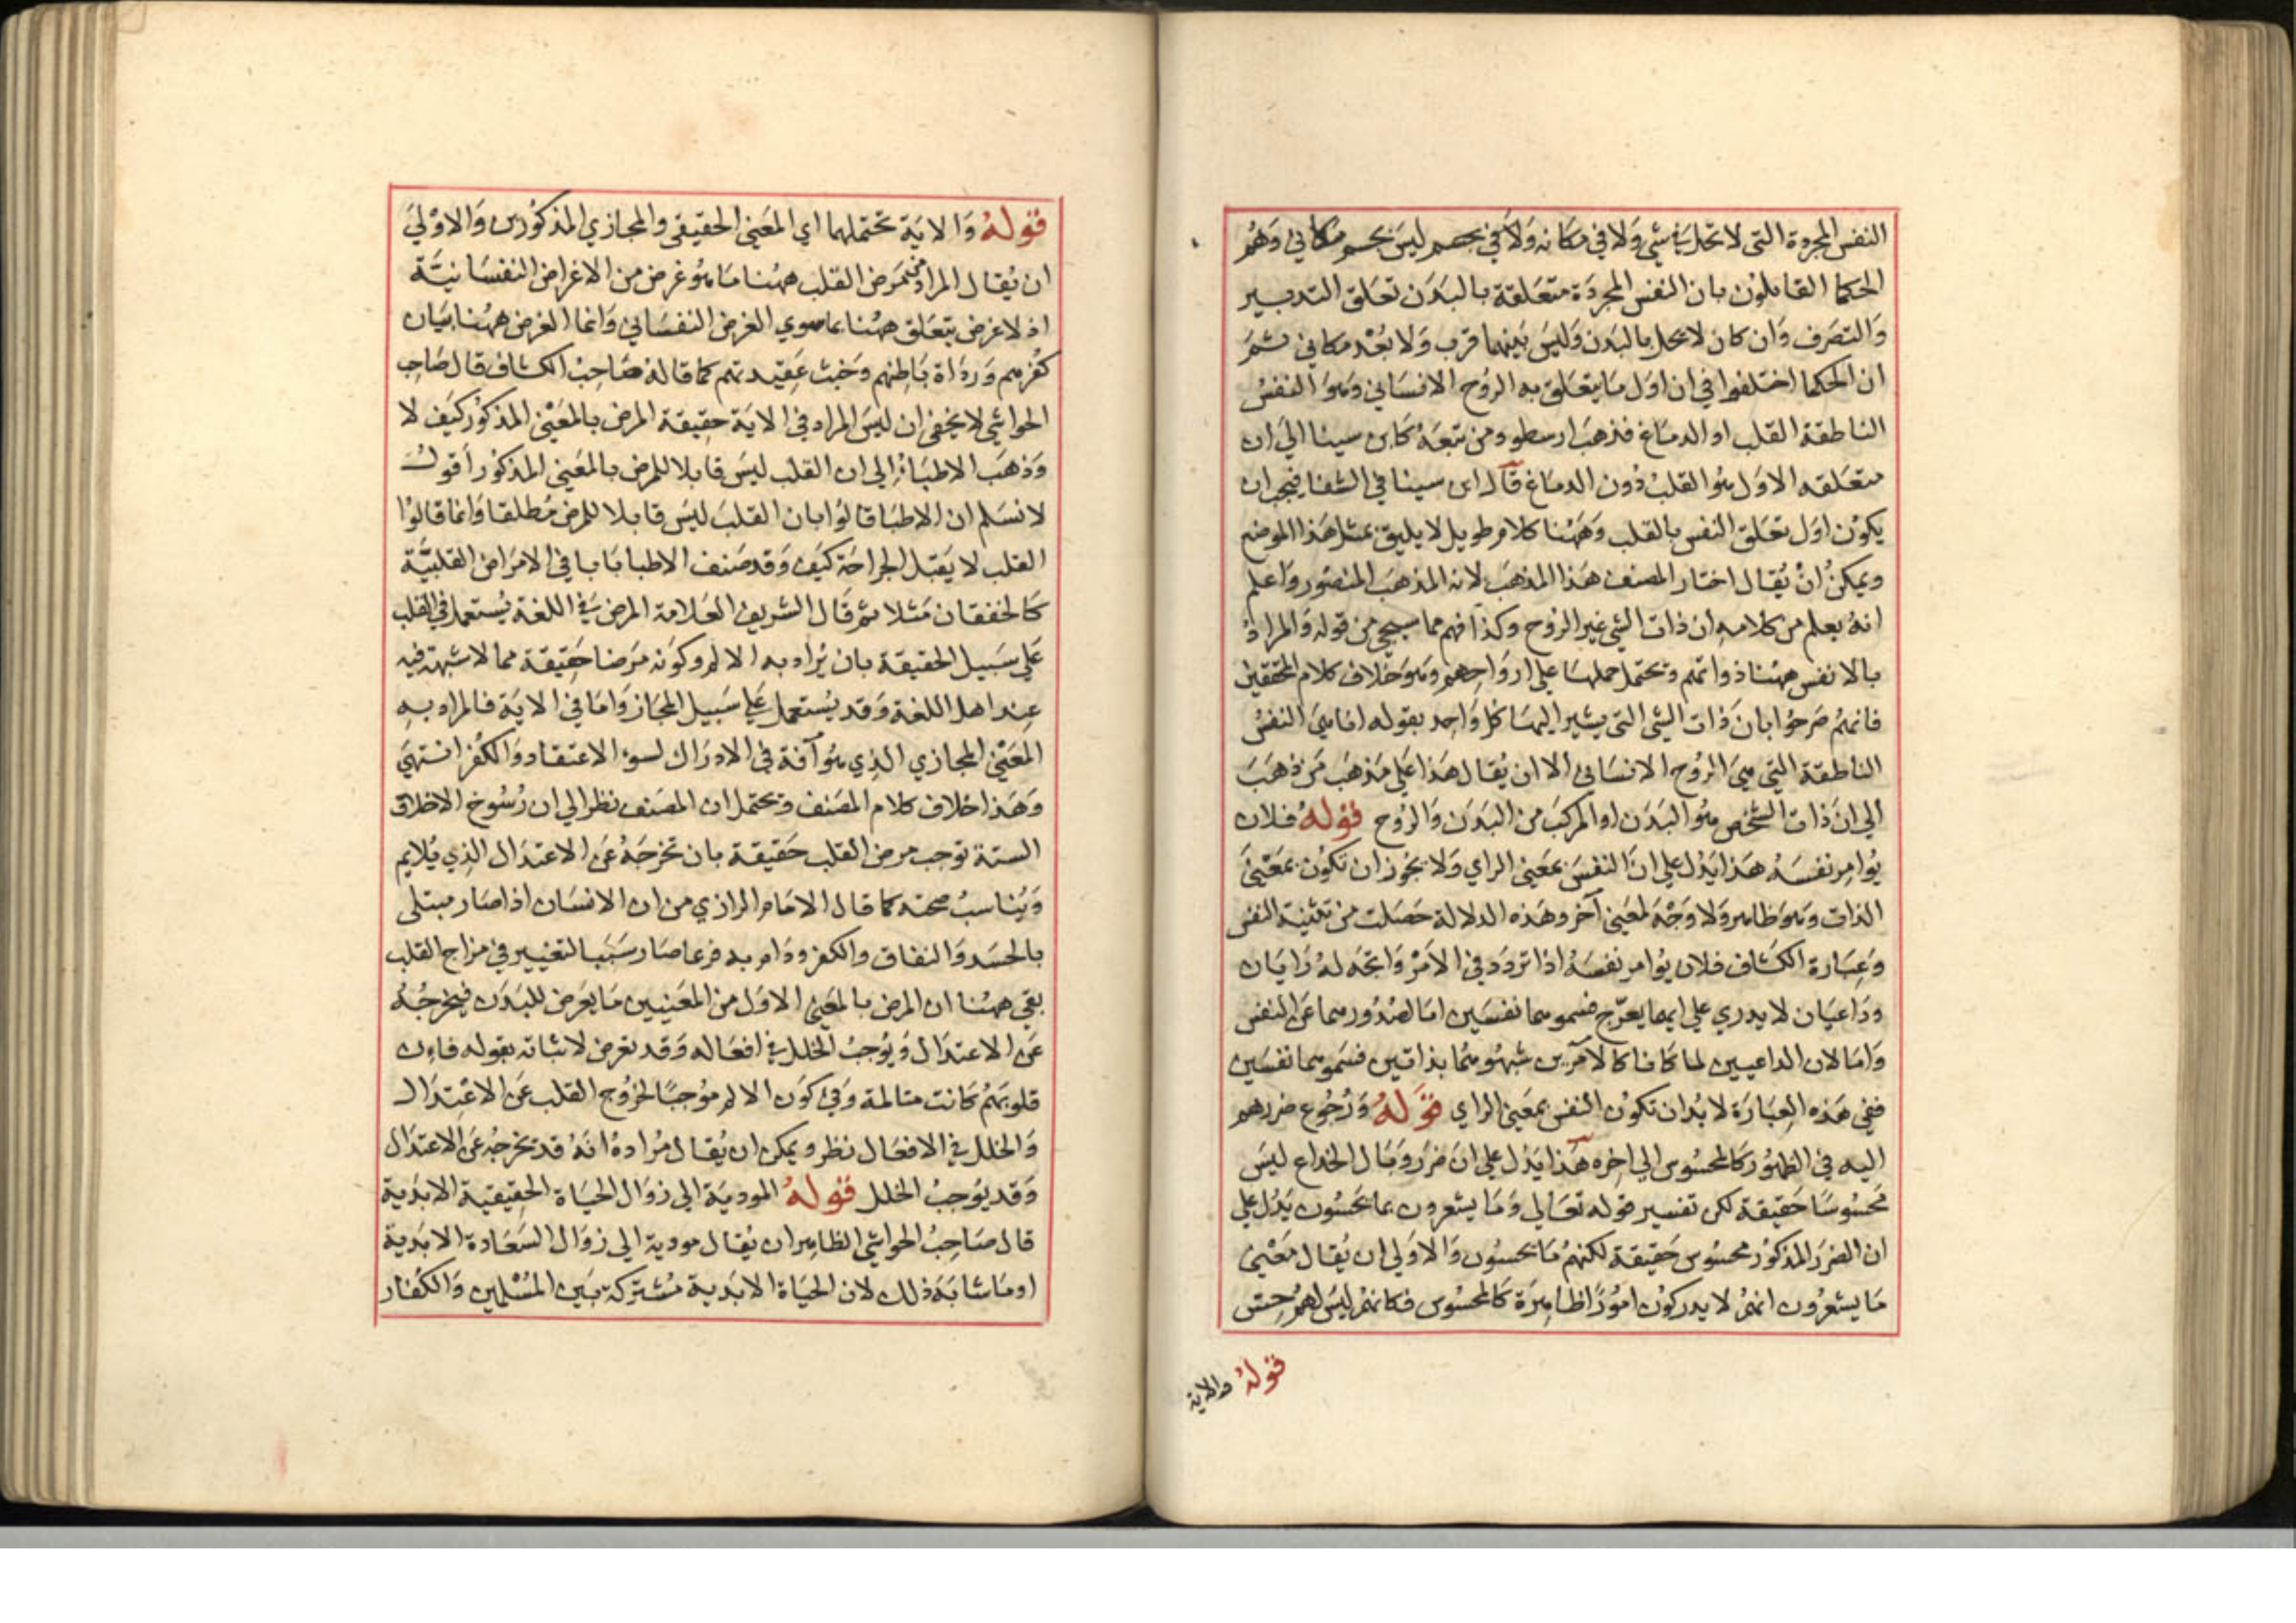 النفس المجردة التى لا تحل في شي ولا في مكانه ولا في جسم ليس بجسم مكاني وهم
الحكما القايلون بان النفس المجردة متعلقة بالبدن تعلق التدبير
والتصرف وان كان لا يحل بالبدن وليس بينهما قرب ولا بعد مكاني ثم
ان الحكما اختلفوا في ان اول ما يتعلق به الروح الانساني وهو النفس
الناطقة القلب او الدماغ فذهب ارسطو ومن تبعه كابن سينا الي ان
متعلقه الاول هو القلب دون الدماغ قال ابن سينا في الشفا فيجب ان
يكون اول تعلق النفس بالقلب وههنا كلام طويل لا يليق بمثل هذا الموضع
ويمكن ان يقال اختار المصنف هذا المذهب لانه المذهب المنصور واعلم
انه يعلم من كلامه ان ذات الشي غير الروح وكذا فهم مما سيجي من قوله والمراد
بالانفس ههنا ذواتهم ويحتمل حملها علي ارواحهم وهو خلاف كلام المحققين
فانهم صرحوا بان ذات الشي التي يشير اليها كل واحد بقوله انا هي النفس
الناطقة التي هي الروح الانساني الا ان يقال هذا علي مذهب من ذهب
الي ان ذات الشخص هو البدن او المركب من البدن والروح قوله فلان
يوامر نفسه هذا يدل علي ان النفس بمعني الراي ولا يجوز ان تكون بمعني
الذات وهو ظاهر ولا وجه لمعني آخر وهذه الدلالة حصلت من تثنية النفس
وعبارة الكشاف فلان يوامر نفسه اذا تردد في الامر واتجه له رايان
وداعيان لا يدري علي ايهما يعرّج فسموهما نفسين اما لصدورهما عن النفس
واما لان الداعيين لما كانا كالآمرين شبهوهما بذاتين فسموهما نفسين
ففي هذه العبارة لا بد ان تكون النفس بمعني الراي قوله ورجوع ضررهم
اليه في الظهور كالمحسوس الي اخره هذا يدل علي ان ضرر وبال الخداع ليس
محسوسا حقيقة لكن تفسير قوله تعالي وما يشعرون بما يحسون يدل علي
ان الضرر المذكور محسوس حقيقة لكنهم ما يحسون والاولي ان يقال معني
ما يشعرون انهم لا يدركون امورا ظاهرة كالمحسوس فكانهم ليس لهم حس
قوله والاية
قوله والاية تحتملهما اي المعني الحقيقي والمجازي المذكورين والاولي
ان يقال المراد من مرض القلب ههنا ما هو غرض من الاغراض النفسانية
اذ لا غرض يتعلق ههنا بما سوي الغرض النفساني وانما الغرض ههنا بيان
كفرهم ورداة باطنهم وخبث عقيدتهم كما قاله صاحب الكشاف قال صاحب
الحواشي لا يخفى ان ليس المراد في الاية حقيقة المرض بالمعني المذكور كيف لا
وذهب الاطباء الي ان القلب ليس قابلا للمرض بالمعني المذكور أقول
لا نسلم ان الاطبا قالوا بان القلب ليس قابلا للمرض مطلقا وانما قالوا
القلب لا يقبل الجراحة كيف وقد صنف الاطبا بابا في الامراض القلبيّة
كالخفقان مثلا ثم قال الشريف العلامة المرض في اللغة يستعمل في القلب
علي سبيل الحقيقة بان يراد به الالم وكونه مرضا حقيقة مما لا شبهة فيه
عند اهل اللغة وقد يستعمل علي سبيل المجاز واما في الاية فالمراد به
المعني المجازي الذي هو آفة في الادراك لسوء الاعتقاد والكفر انتهي
وهذا خلاف كلام المصنف ويحتمل ان المصنف نظر الي ان رسوخ الاخلاق
السئة توجب مرض القلب حقيقة بان تخرجه عن الاعتدال الذي يلايم
ويناسب صحته كما قال الامام الرازي من ان الانسان اذا صار مبتلى
بالحسد والنفاق والكفر ودام به فربما صار سببا لتغيير في مزاج القلب
بقي ههنا ان المرض بالمعني الاول من المعنيين ما يعرض للبدن فيخرجه
عن الاعتدال ويوجب الخلل في افعاله وقد تعرض لاثباته بقوله فان
قلوبهم كانت متالمة وفي كون الالم موجبا لخروج القلب عن الاعتدال
والخلل في الافعال نظر ويمكن ان يقال مراده انه قد تخرجه عن الاعتدال
وقد يوجب الخلل قوله المودية الي زوال الحياة الحقيقية الابدية
قال صاحب الحواشي الظاهر ان يقال مودية الي زوال السعادة الابدية
او ما شابه ذلك لان الحياة الابدية مشتركة بين المسلمين والكفار